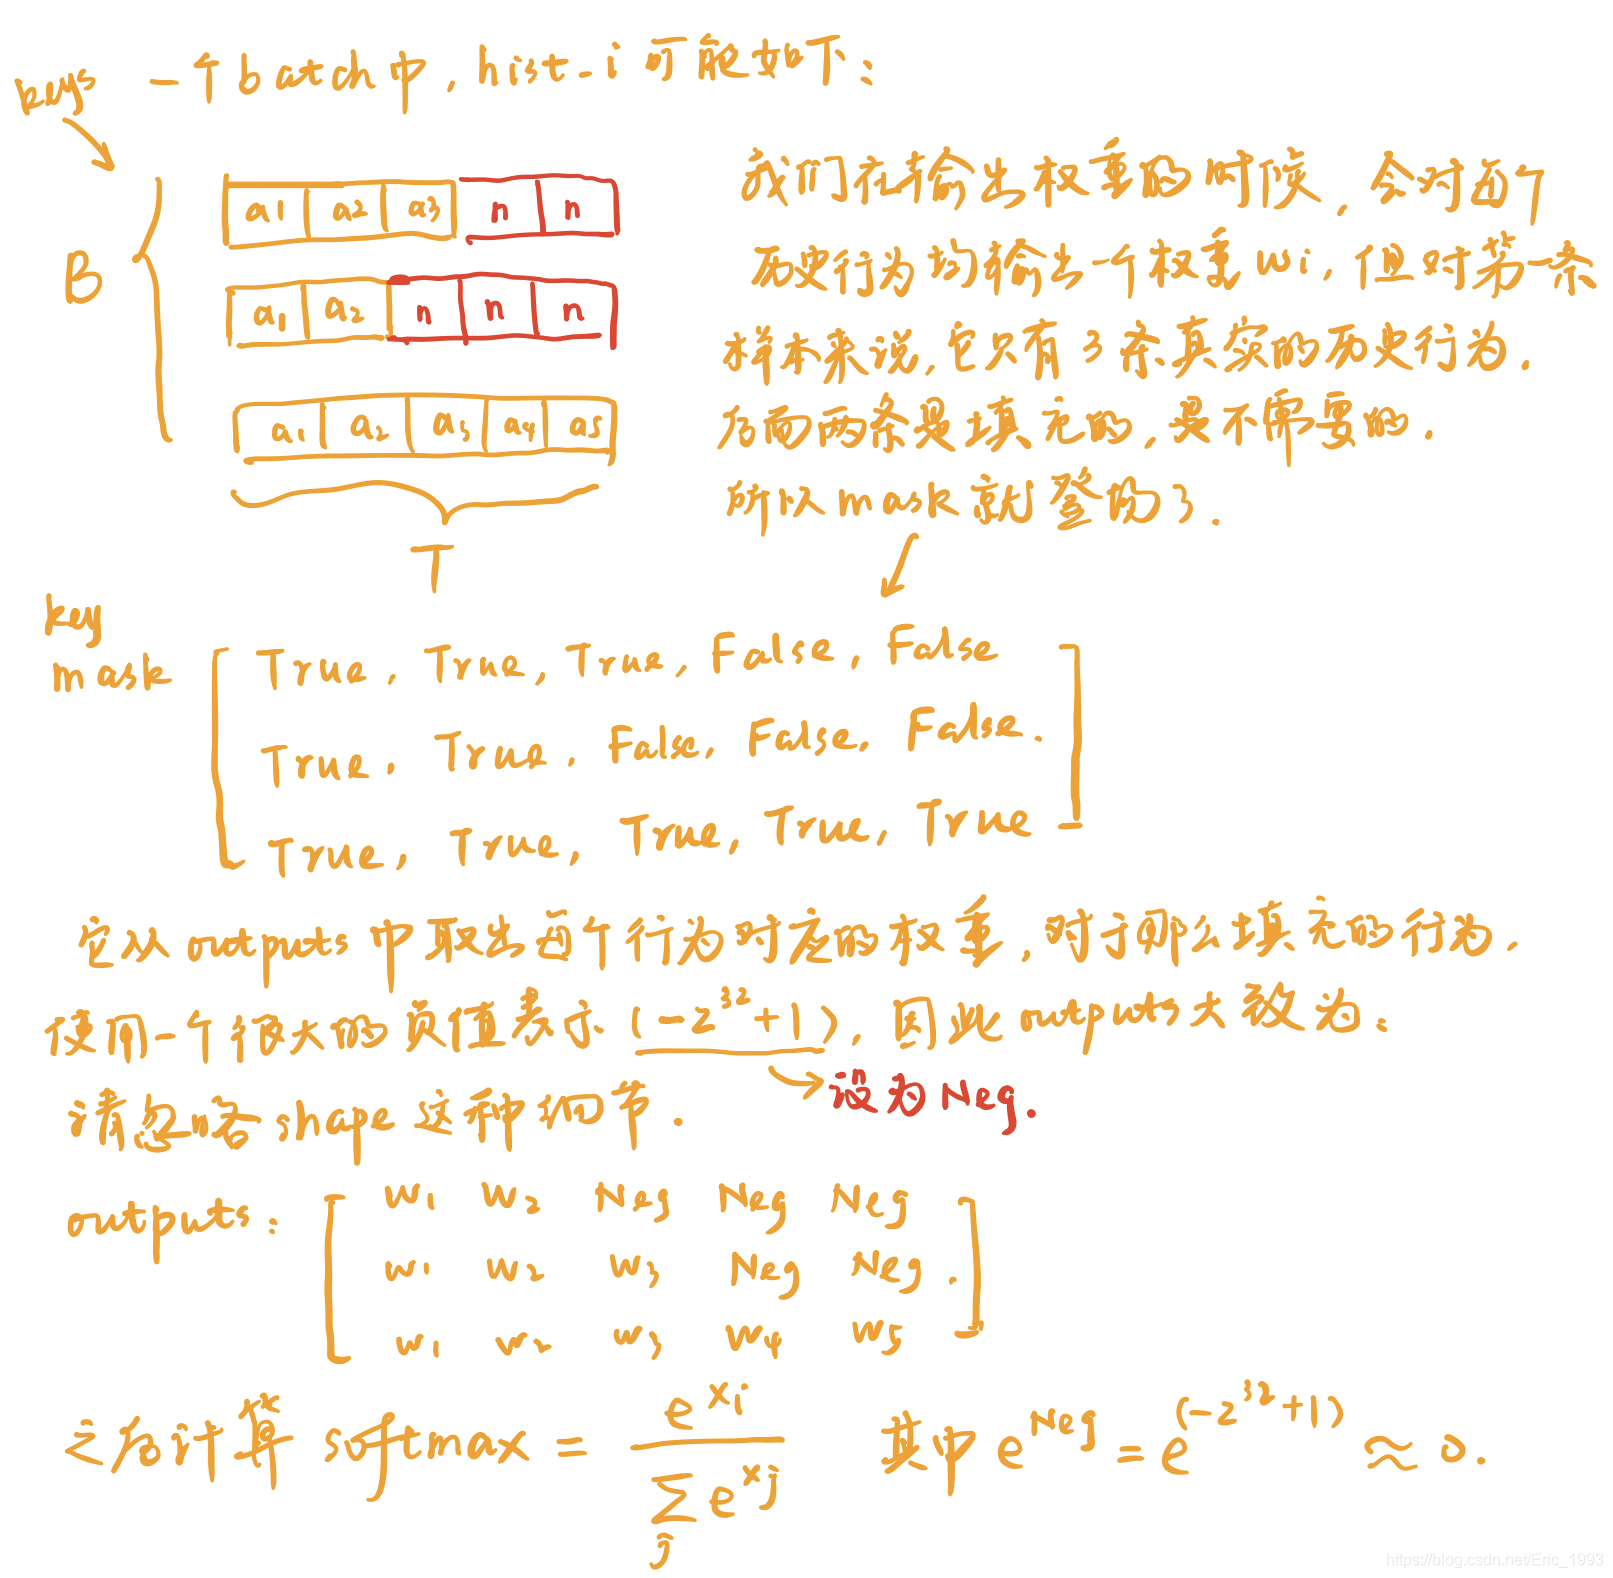 keys 一个batch中, hist_i 可能如下:
B
a1 a2 a3 n n
a1 a2 n n n
a1 a2 a3 a4 a5
T
我们在输出权重的时候, 会对每个
历史行为均输出一个权重 wi, 但对第一条
样本来说, 它只有 3 条真实的历史行为.
后面两条是填充的, 是不需要的.
所以 mask 就登场了.
key
mask
True, True, True, False, False
True, True, False, False, False.
True, True, True, True, True
它从 outputs 中取出每个行为对应的权重, 对于那么填充的行为,
使用一个很大的负值表示 (-2^32+1), 因此 outputs 大致为:
设为 Neg.
请忽略 shape 这种细节.
outputs:
w1 w2 Neg Neg Neg
w1 w2 w3 Neg Neg.
w1 w2 w3 w4 w5
之后计算 softmax = e^xi / ∑j e^xj 其中 e^Neg = e^(-2^32+1) ≈ 0.
https://blog.csdn.net/Eric_1993